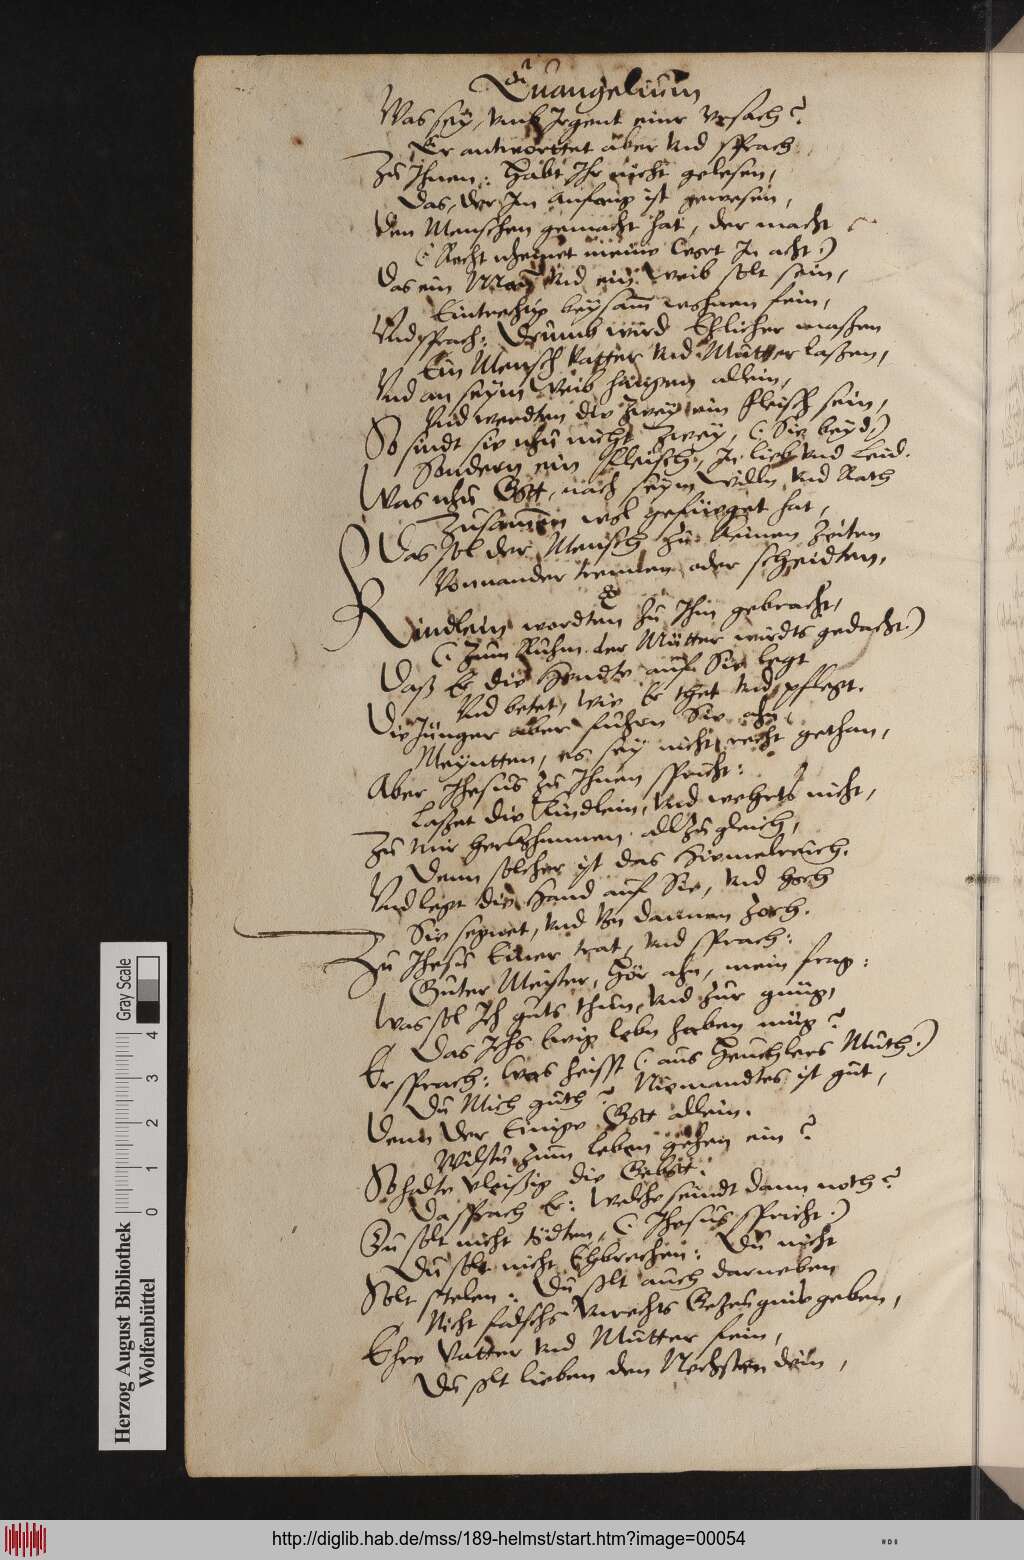 Euangelium
Was sey, vmb Irgent einr vrsach?
Er antworttet aber vnd sprach
Zu Ihnen: Habt Ihr nicht gelesen,
Das, der Im anfang ist gewesen,
Den Menschen gemacht hat, der macht
(: Recht meine wort In acht:)
Das ein Man vnd ein Weib solt sein,
Eintrechtig beysam wohnen fein,
Vnd sprach: Drumb wird Ehlicher maßen
Ein Mensch Vatter vnd Mutter laßen,
Vnd an seym Weib hangen allein,
Vnd werdten die Zwey ein fleisch sein,
So sindt sie nhu nicht Zwey, (: Sie beyd:)
Sondern ein fleisch, In lieb vnd leid.
Was nhu Gott, nach seym willn vnd Rath
Zusamen wol gefüeget hat,
Das sol der Mensch zu keinen Zeiten
Vonnander trennen oder scheidten.
Kindlein wordten zu Ihm gebracht,
(: Zum Ruhm der Mütter wirdts gedacht:)
Daß Er die Hendte auf Sie legt
Vnd betet, wie Er thet vnd pflegt.
Die Jünger aber fuhren Sie ahn
Meyntten, es sey nicht recht gethan,
Aber Jhesus zu Ihnen spricht:
Laßet die Kindlein, vnd wehrts nicht,
Zu mir herkhummen all zu gleich,
Denn solcher ist das Himelreich.
Vnd legt die Hand auf Sie, vnd hoch
Sie segnet, vnd von dannen Zoch.
Zu Jhesu Einer trat, vnd sprach:
Guter Meister, Hör ahn, mein frag:
Was sol Ich guts thun, vnd zur gnüg,
Das Ichs Ewig lebn haben müg?
Er sprach: Was heisst (: aus Heuchlers Muth:)
Du Mich guth? Niemandtes ist gut,
Denn Der Einige Gott allein.
Wilstu zum leben gehen ein?
So halte vleißig die Gebott:
Da sprach Er: Welche seindt dann noth?
Du solt nicht tödten, (: Jhesus spricht:)
Du solt nicht Ehbrechen: Du nicht
Solt stelen: Du solt auch darneben
Nicht falschs vnrechts Gezeugnüs geben,
Ehre Vatter vnd Mutter fein,
Du solt lieben den Nechsten dein,
Herzog August Bibliothek
Wolfenbüttel
0 1 2 3 4
Gray Scale
http://diglib.hab.de/mss/189-helmst/start.htm?image=00054